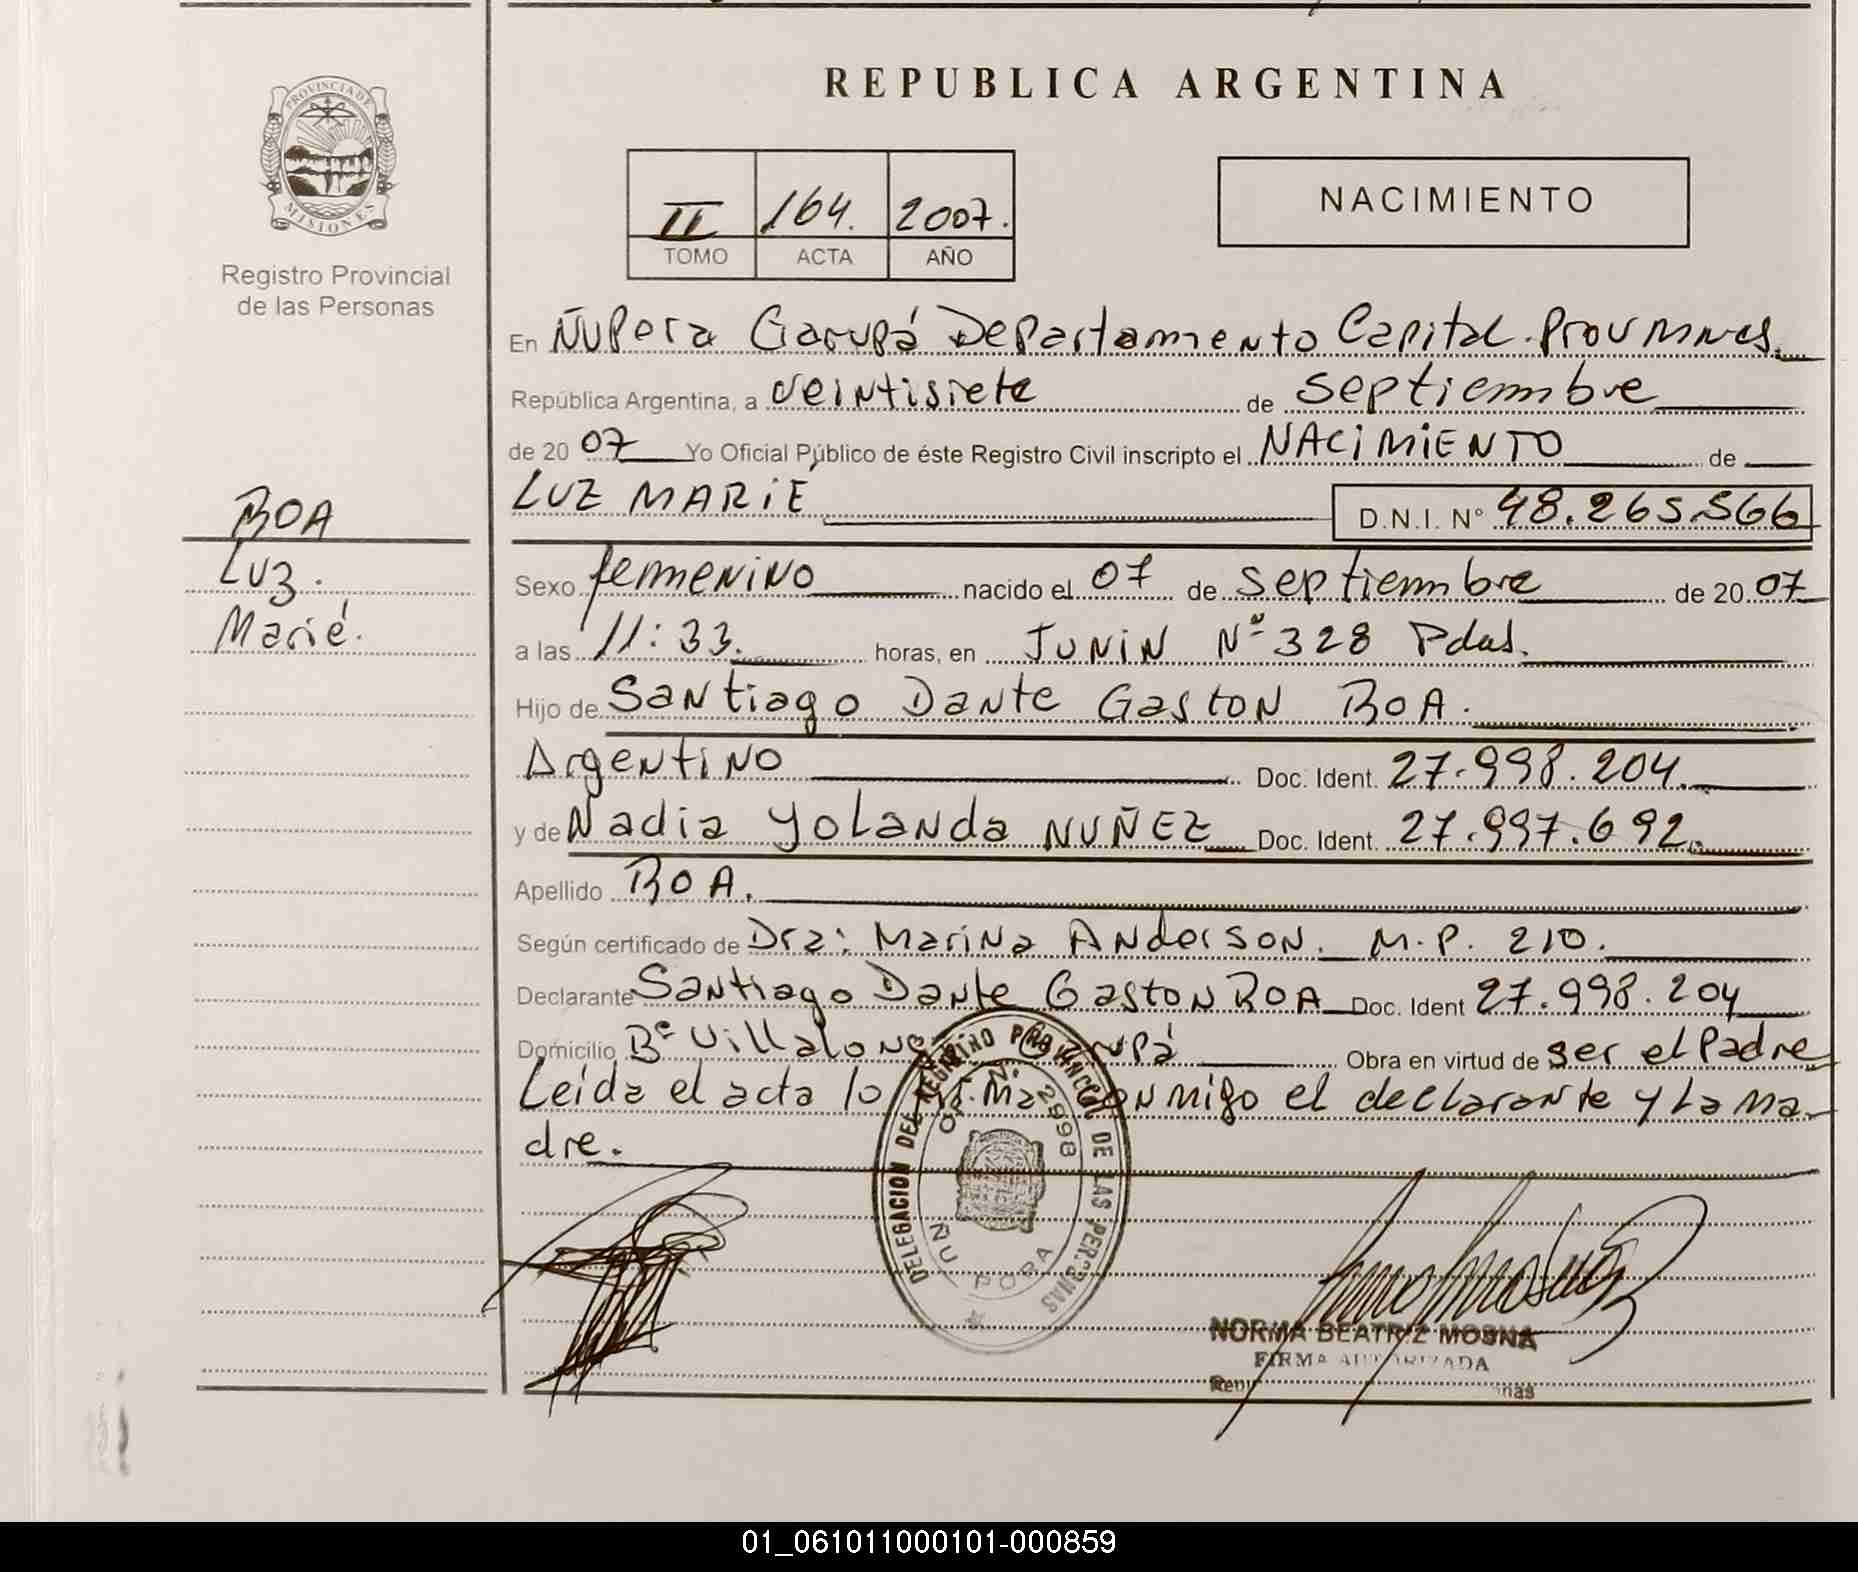 REPUBLICA ARGENTINA
PROVINCIA DE MISIONES
Registro Provincial
de las Personas
II 164. 2007.
TOMO ACTA AÑO
NACIMIENTO
En ÑuPora Garupá Departamento Capital. Prov Mnes.
República Argentina, a veintisiete de septiembre
de 2007 Yo Oficial Público de éste Registro Civil inscripto el NACIMIENTO de
LUZ MARIÉ D.N.I. N° 48.265.566
ROA
Luz.
Marié.
Sexo femenino nacido el 07 de septiembre de 2007
a las 11:33. horas, en JUNIN Nº 328 Pdas.
Hijo de Santiago Dante Gaston ROA.
Argentino Doc. Ident. 27.998.204.
y de Nadia Yolanda NUÑEZ Doc. Ident. 27.997.692.
Apellido ROA.
Según certificado de Dra: Marina Anderson. M.P. 210.
Declarante Santiago Dante Gaston ROA Doc. Ident 27.998.204
Domicilio Bº Villalonga Garupá Obra en virtud de ser el Padre
Leída el acta lo firma conmigo el declarante y la ma-
dre.
DELEGACION DEL REGISTRO PROVINCIAL DE LAS PERSONAS
OF. N. 2998
ÑU PORA
NORMA BEATRIZ MOSNA
FIRMA AUTORIZADA
01_061011000101-000859